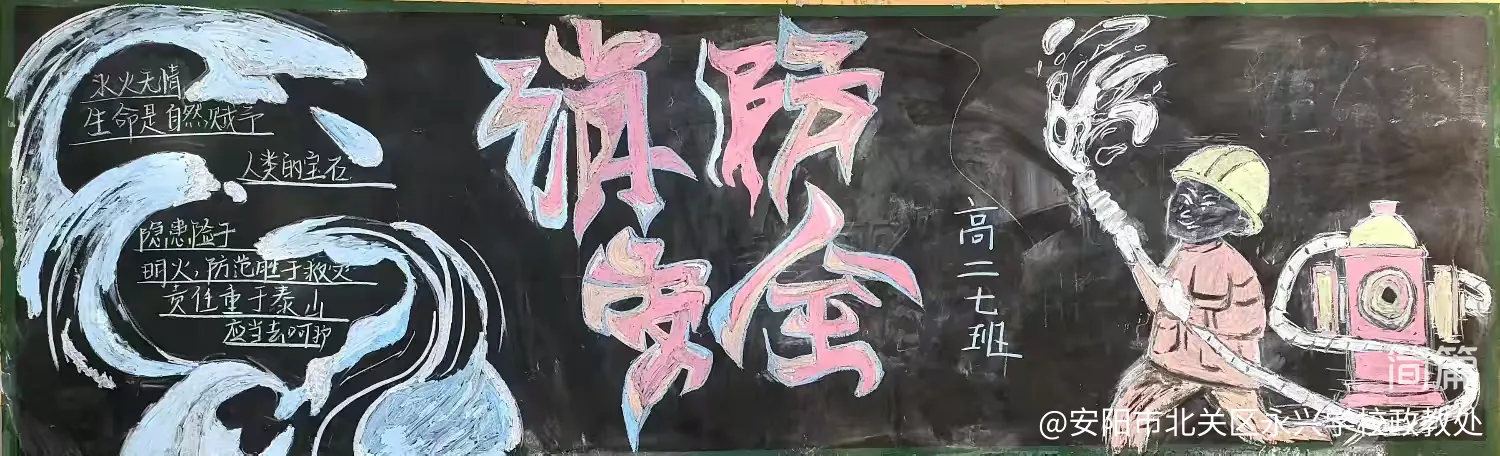 水火无情
生命是自然赋予
人类的宝石
隐患险于
明火,防范胜于救灾
责任重于泰山
应当去呵护
消防
安全
高二七班
简篇
@安阳市北关区永兴学校政教处